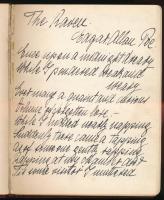 The Raven
Edgar Allan Poe
Once upon a midnight dreary
While I pondered weak and
weary
Over many a quaint and curious
Volume of forgotten lore —
While I nodded nearly napping
Suddenly there came a tapping
As of someone gently rapping
rapping at my chamber door
Tis some visitor I muttered